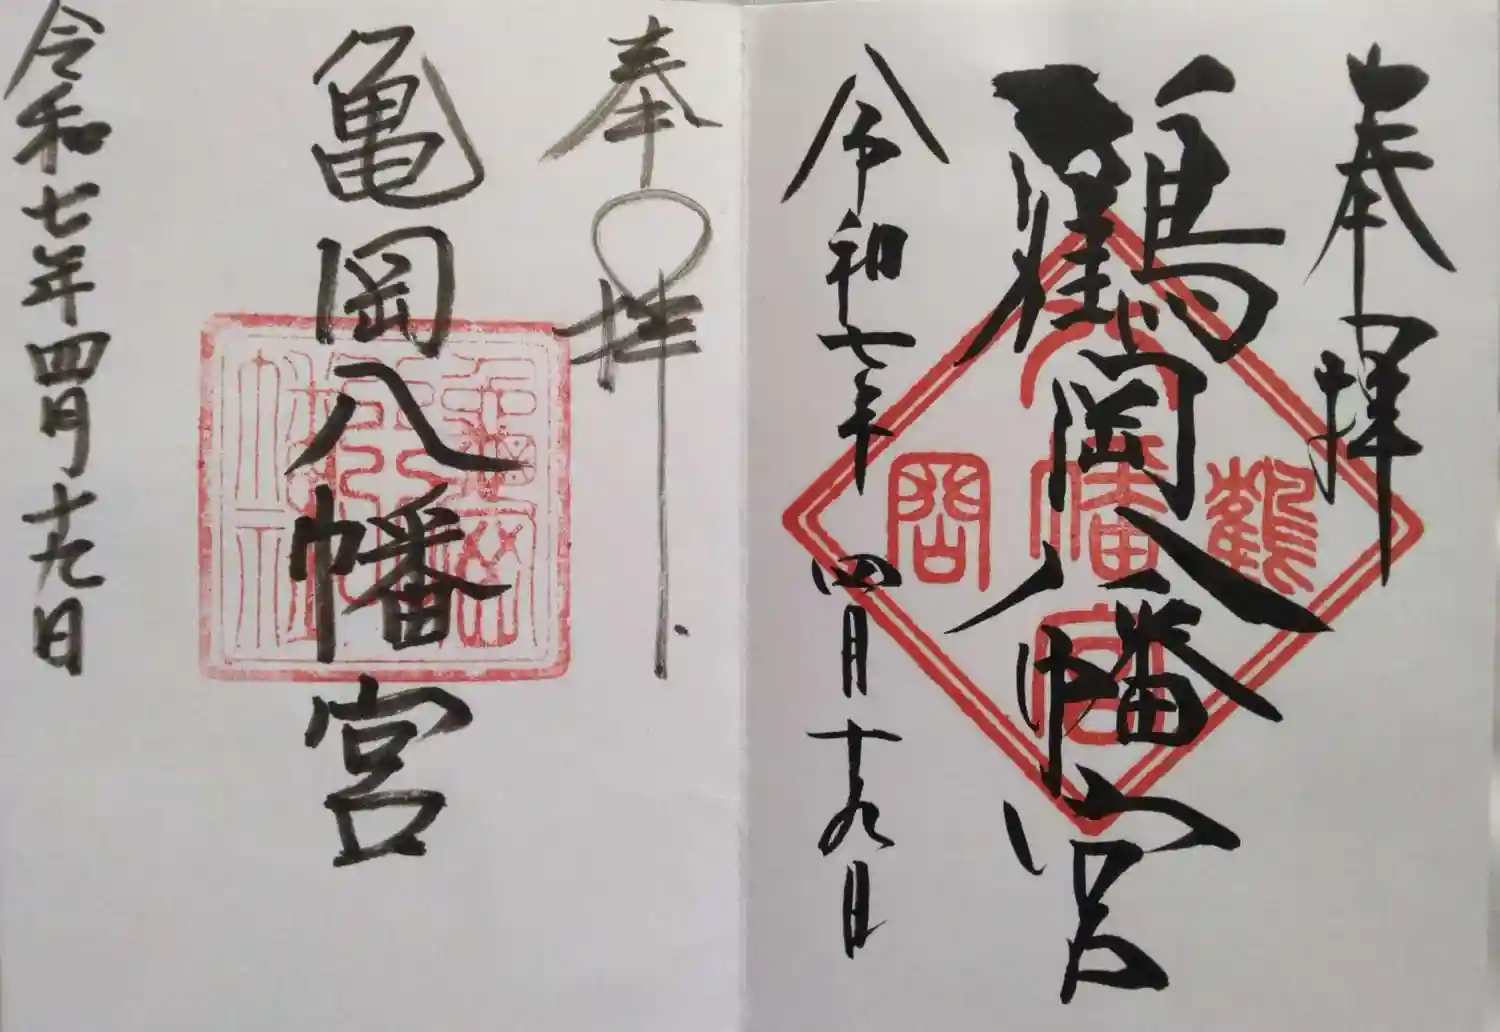 奉拝
鶴岡八幡宮
令和七年四月十九日
鶴
岡
八
幡
宮
奉拝
亀岡八幡宮
令和七年四月十九日